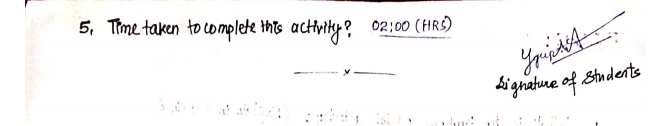 5, Time taken to complete this activity? 02:00 (HRS)
x
Signature of Students